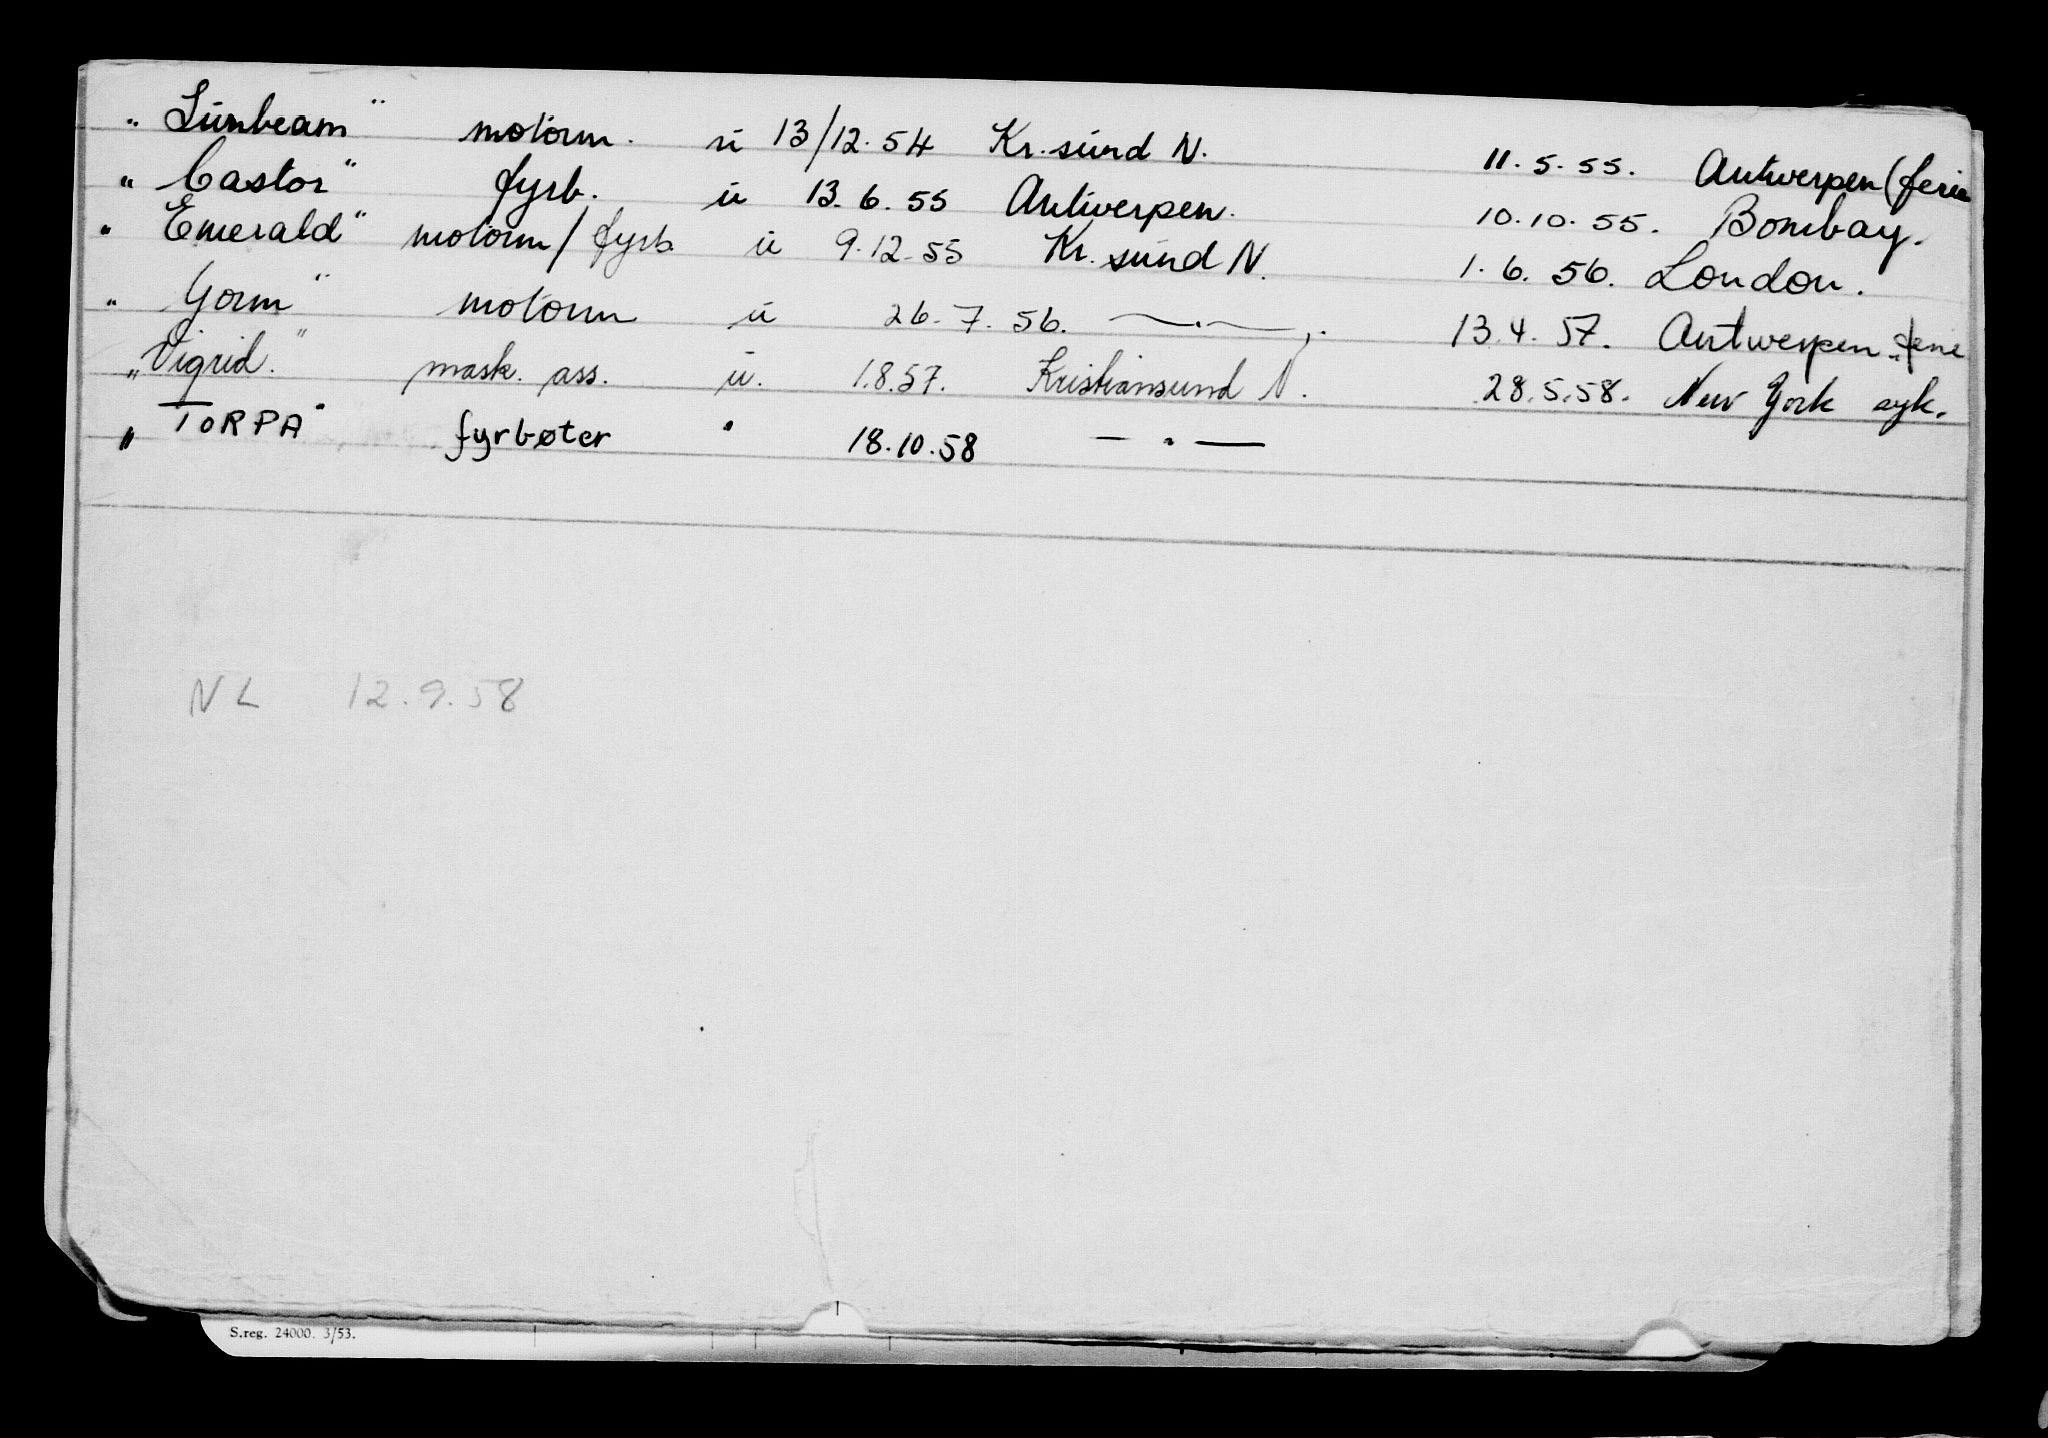 " Sunbeam " motorm. u 13/12.54 Kr.sund N. 11.5.55. Antwerpen (ferie
" Castor " fyrb. u 13.6.55 Antwerpen. 10.10.55. Bombay.
" Emerald " motorm/fyrb u 9.12.55 Kr. sund N. 1.6.56. London.
" Gorm " motorm u 26.7.56. —"— 13.4.57. Antwerpen. ferie
" Vigrid. " mask. ass. u. 1.8.57. Kristiansund N. 28.5.58. New York syk.
" TORPA " fyrbøter " 18.10.58 —"—
NL 12.9.58
S.reg. 24000. 3/53.